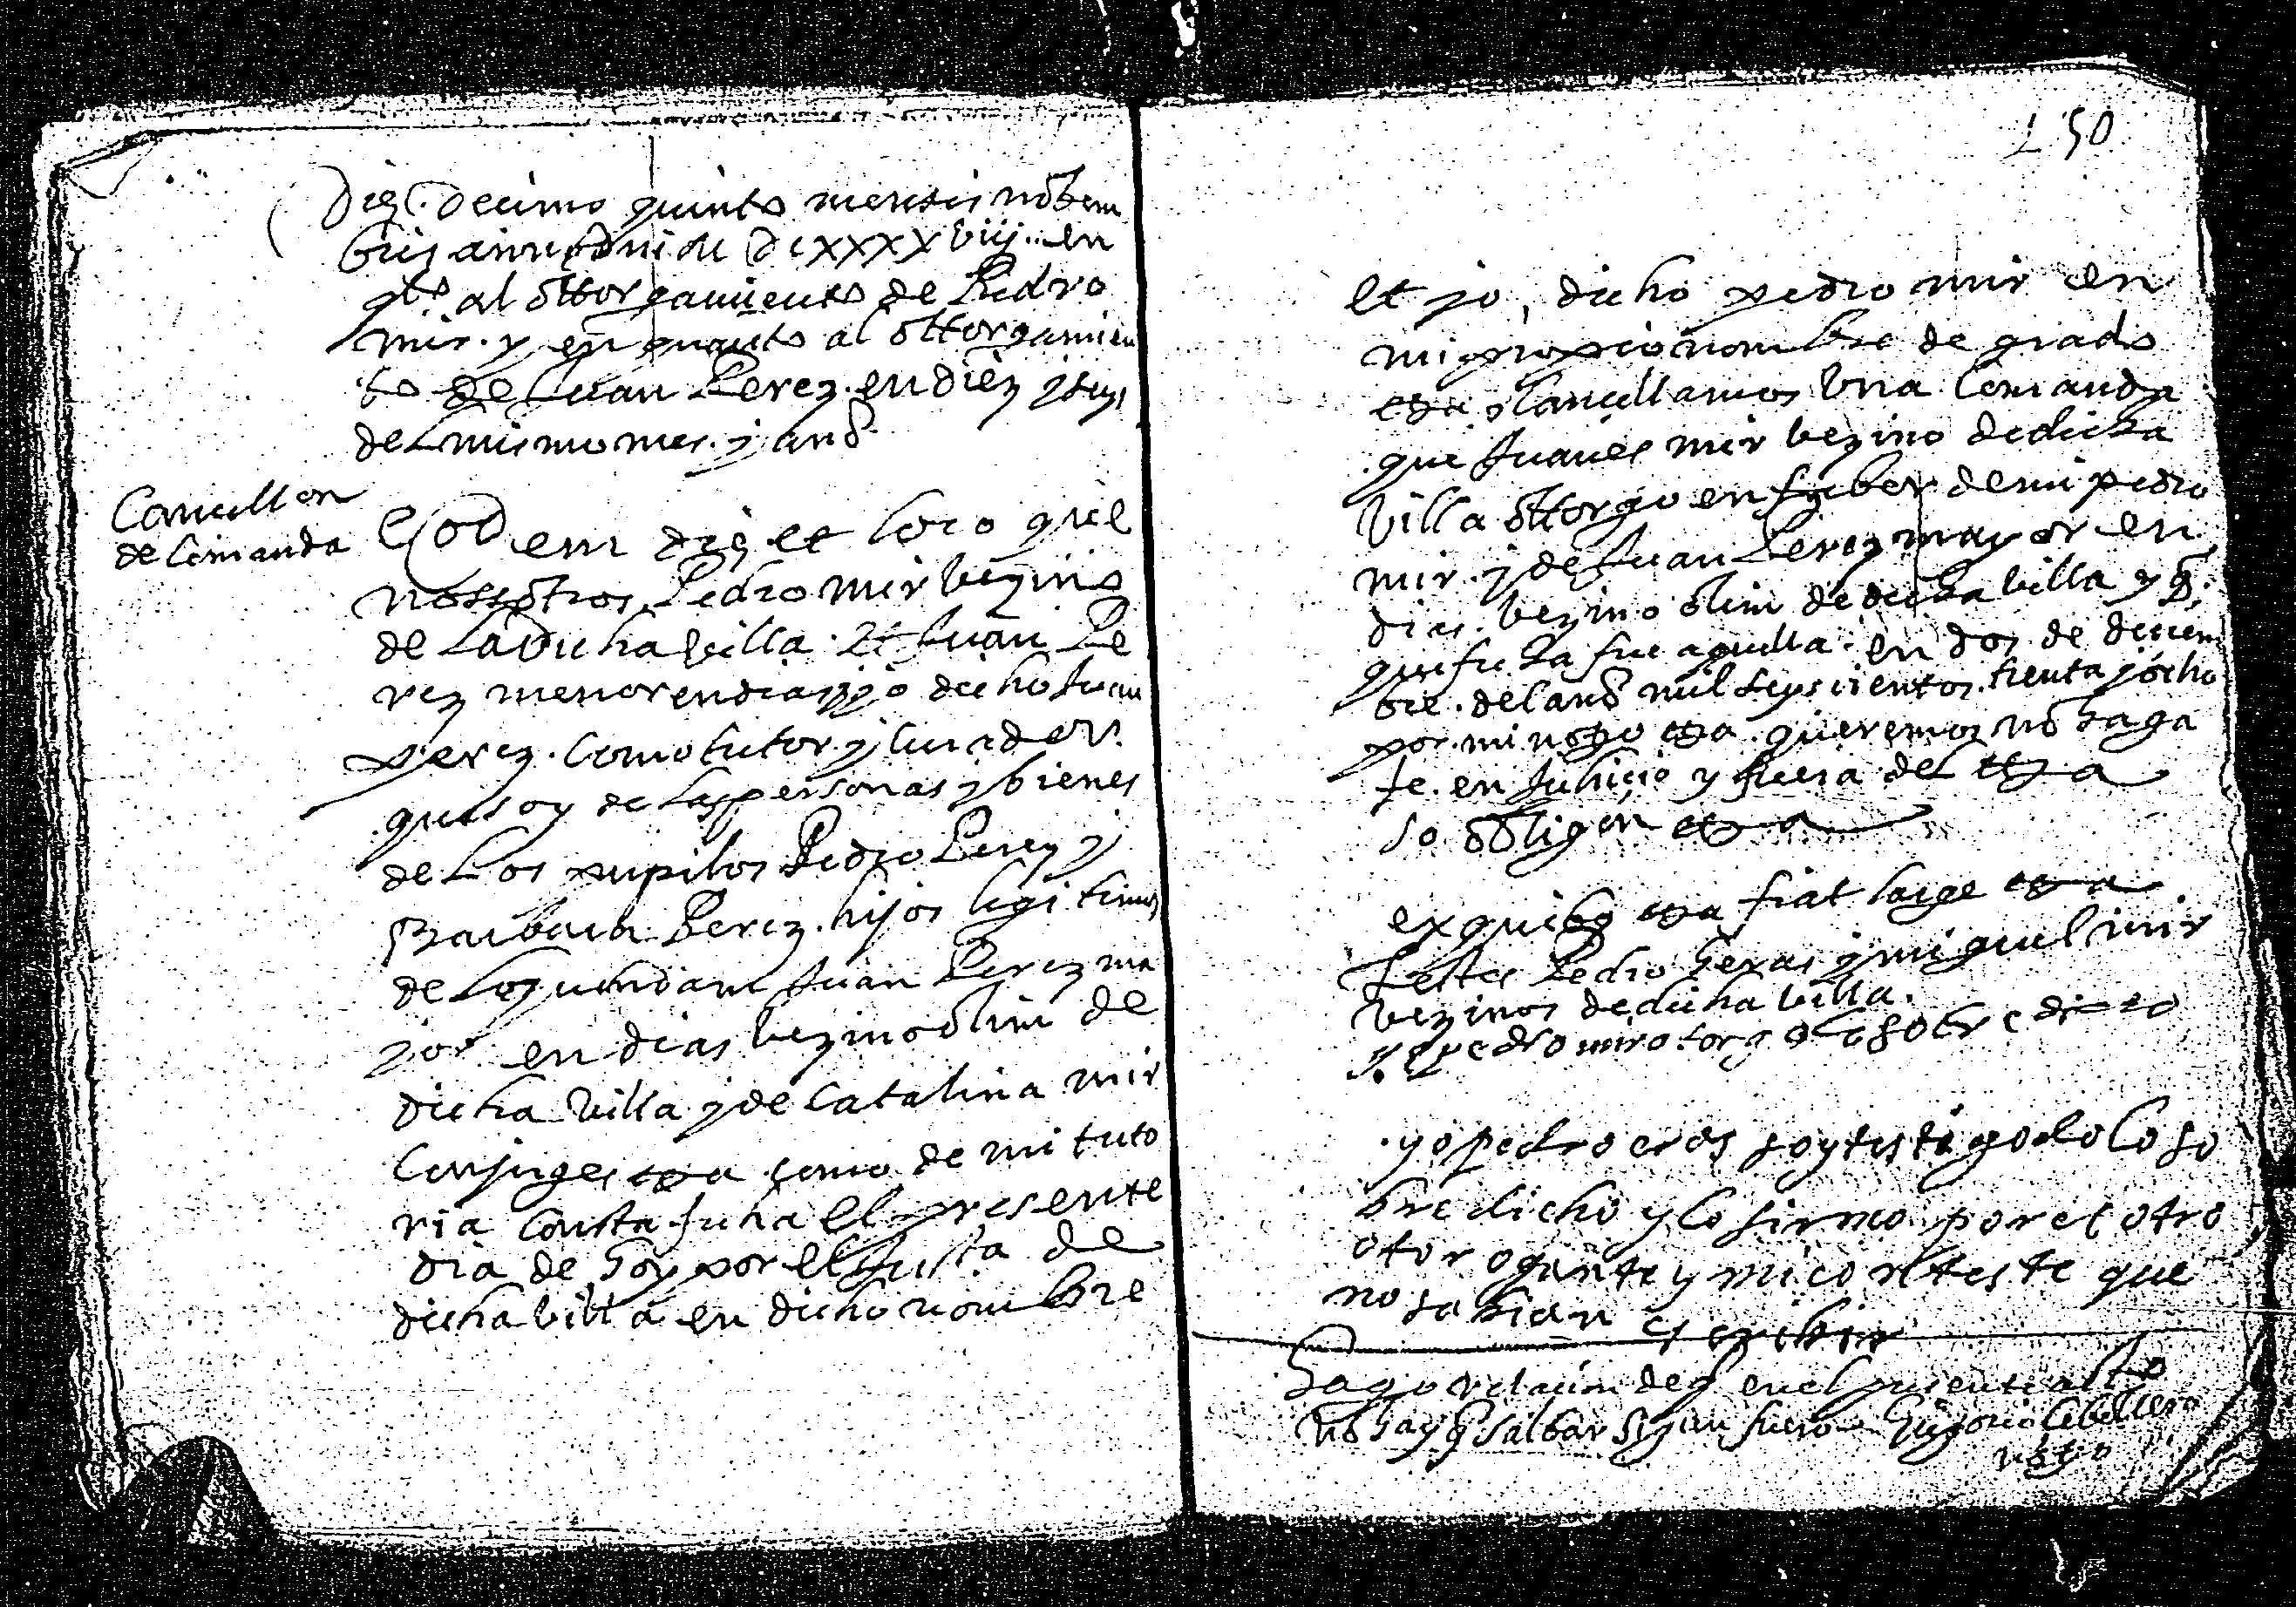 Die Decimo quinto mensis nobem
bris anni dni M DCXXXXviij. en
qto al ottorgamiento de Pedro
mir. y en quanto al ottorgamien
to de Juan Perez. en diez y seys
del mismo mes. y año
Cancellon
de Comanda
Eodem die et loco que
nossotros Pedro mir bezino
de la Dicha billa. Et Juan Pe
rez menor en dias yo dicho Juan
perez. como tutor y curador.
que soy de las personas y bienes
de Los pupilos Pedro Perez y
Barbara Perez. hijos legitimos
de los quondam Juan Perez ma
yor en dias bezino olim de
dicha billa y de Catalina mir
Conjuges etza como de mi tuto
ria Consta fecha el presente
dia de hoy por el Justa de
dicha billa en dicho nombre
150
et yo, dicho pedro mir en
mi propio nombre de grado
etza Cancellamos Una Comanda
que Juanes mir bezino de dicha
Villa ottorgo en fabor de mi pedro
mir. y de Juan Perez mayor en
dias. bezino olim de dicha billa y q
que fecha fue aquella. en dos de deciem
bre. del año mil seyscientos. trenta y ocho
por. mi notto etza. queremos no haga
fe. en Juhicio y fuera del etza
so obligon etza
ex quibs etza fiat large etza
Testes Pedro heras y miguel mir
bezinos de dicha billa.
yo pedro mir otorgo lo sobre dicho
yo pedro eras soy testigo de lo so
bre dicho y lo firmo por el otro
otorogante y mi contteste que
no sabian escribir
hago relacion de q en el presente acto
no hay q salbar segun fuero Gregorio Caballero
notto